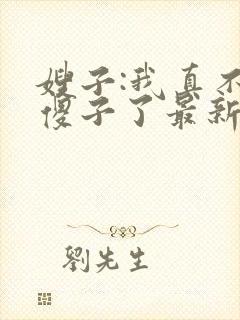 嫂子:我真不
傻子了最新
劉先生